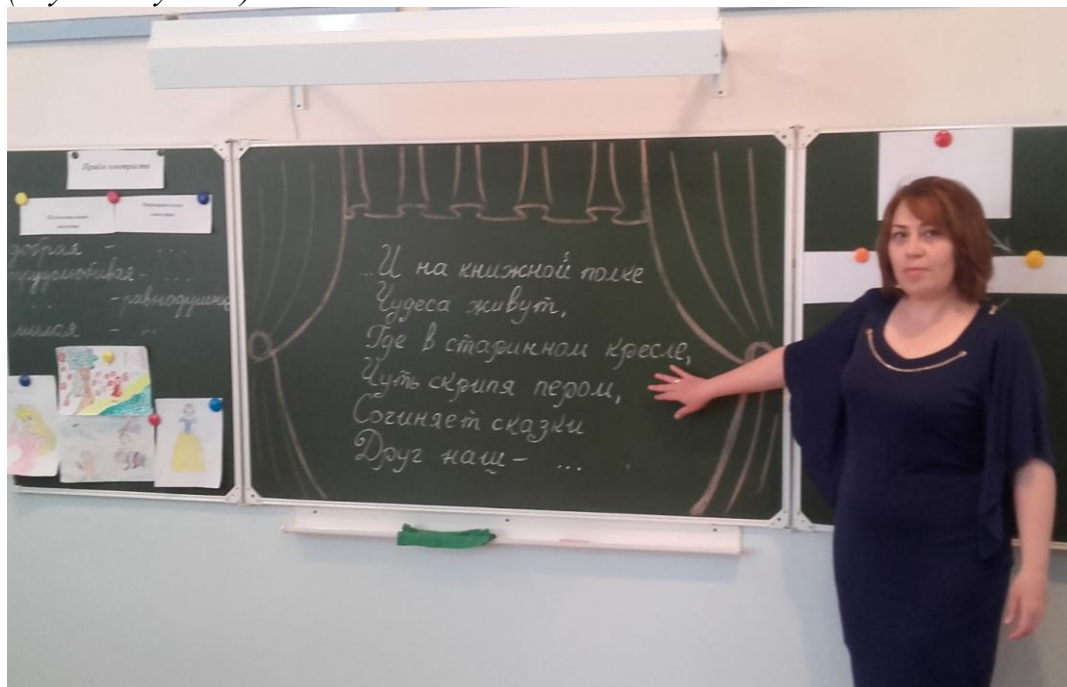 Приём контраста
Положительные
Отрицательные
добрая - ...
трудолюбивая - ...
... - равнодушие
милая - ...
...И на книжной полке
Чудеса живут,
Где в старинном кресле,
Чуть скрипя пером,
Сочиняет сказки
Друг наш - ...